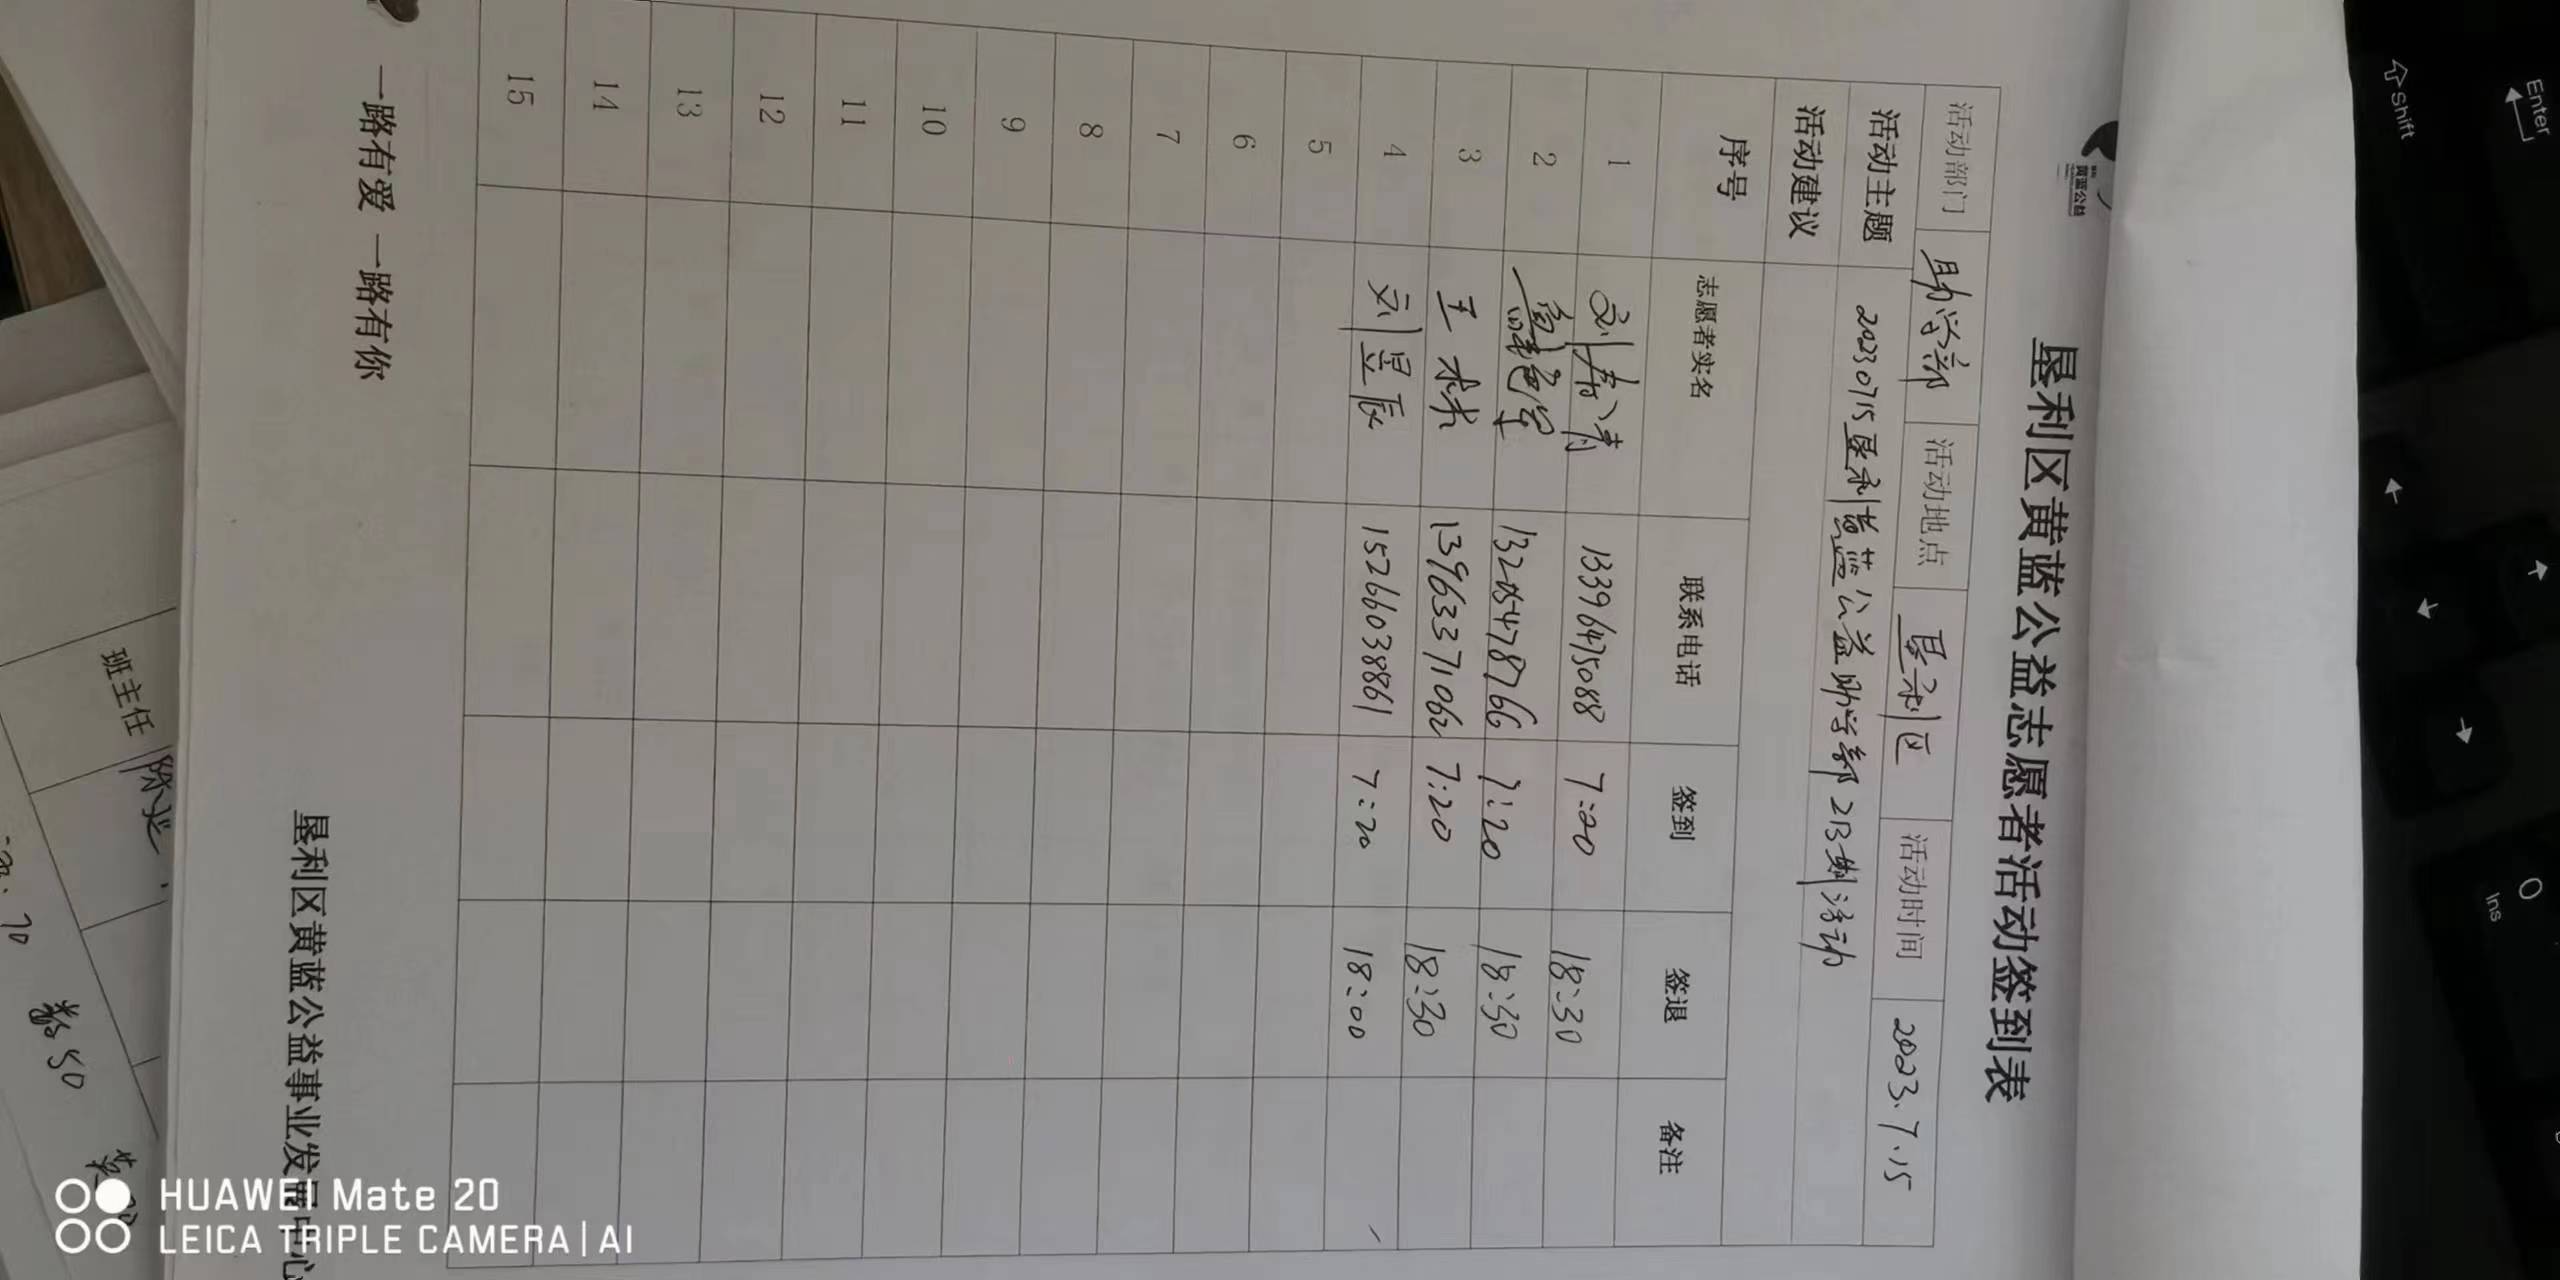 黄蓝公益
垦利区黄蓝公益志愿者活动签到表
活动部门 助学部 活动地点 垦利区 活动时间 2023.7.15
活动主题 20230715垦利黄蓝公益助学部213期活动
活动建议
序号 志愿者实名 联系电话 签到 签退 备注
1 刘春涛 13396475088 7:20 18:30
2 1325478766 7:20 18:30
3 王彬 13963371062 7:20 18:30
4 刘昱辰 15266038861 7:20 18:00
5
6
7
8
9
10
11
12
13
14
15
一路有爱 一路有你
垦利区黄蓝公益事业发展中心
班主任
70
50
Enter
Shift
0
Ins
HUAWEI Mate 20
LEICA TRIPLE CAMERA | AI